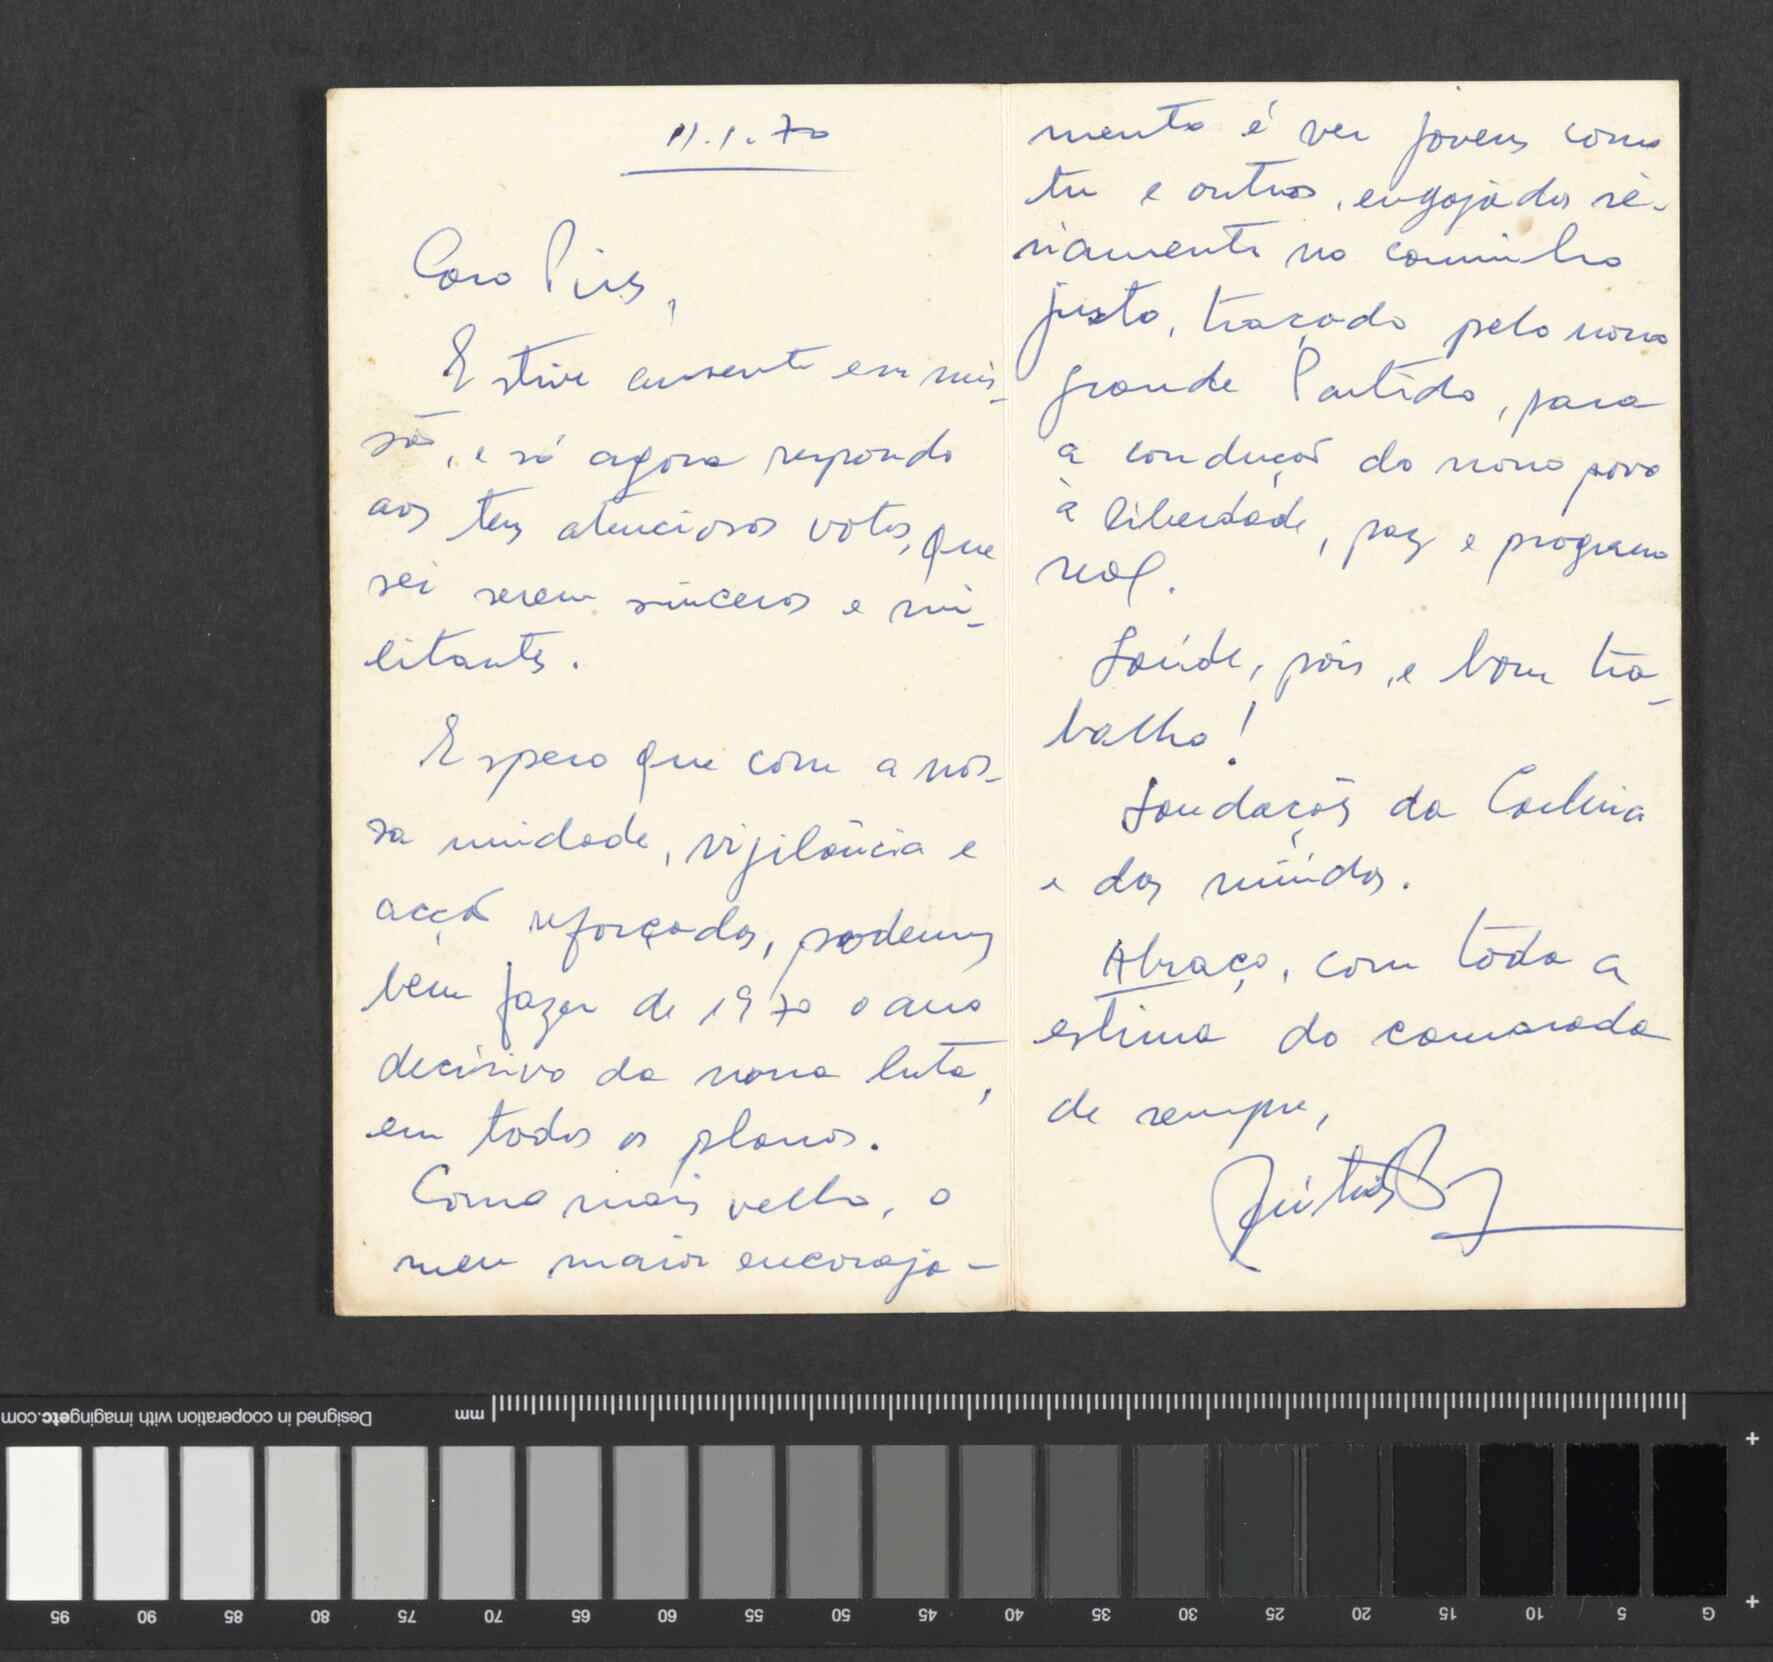 11.1.70
Caro Pires,
Estive ausente em mis-
são, e só agora respondo
aos teus atenciosos votos, que
sei serem sinceros e mi-
litantes.
Espero que com a nos-
sa unidade, vigilância e
acção reforçadas, podemos
bem fazer de 1970 o ano
decisivo da nossa luta,
em todos os planos.
Como mais velho, o
meu maior encoraja-
mento é ver jovens como
tu e outros, engajados sè-
riamente no caminho
justo, traçado pelo nosso
grande Partido, para
a condução do nosso povo
à liberdade, paz e progresso
real.
Saúde, pois, e bom tra-
balho!
Saudações da Carlina
e dos miúdos.
Abraço, com toda a
estima do camarada
de sempre,
Designed in cooperation with imagingetc.com
mm
95 90 85 80 75 70 65 60 55 50 45 40 35 30 25 20 15 10 5 G